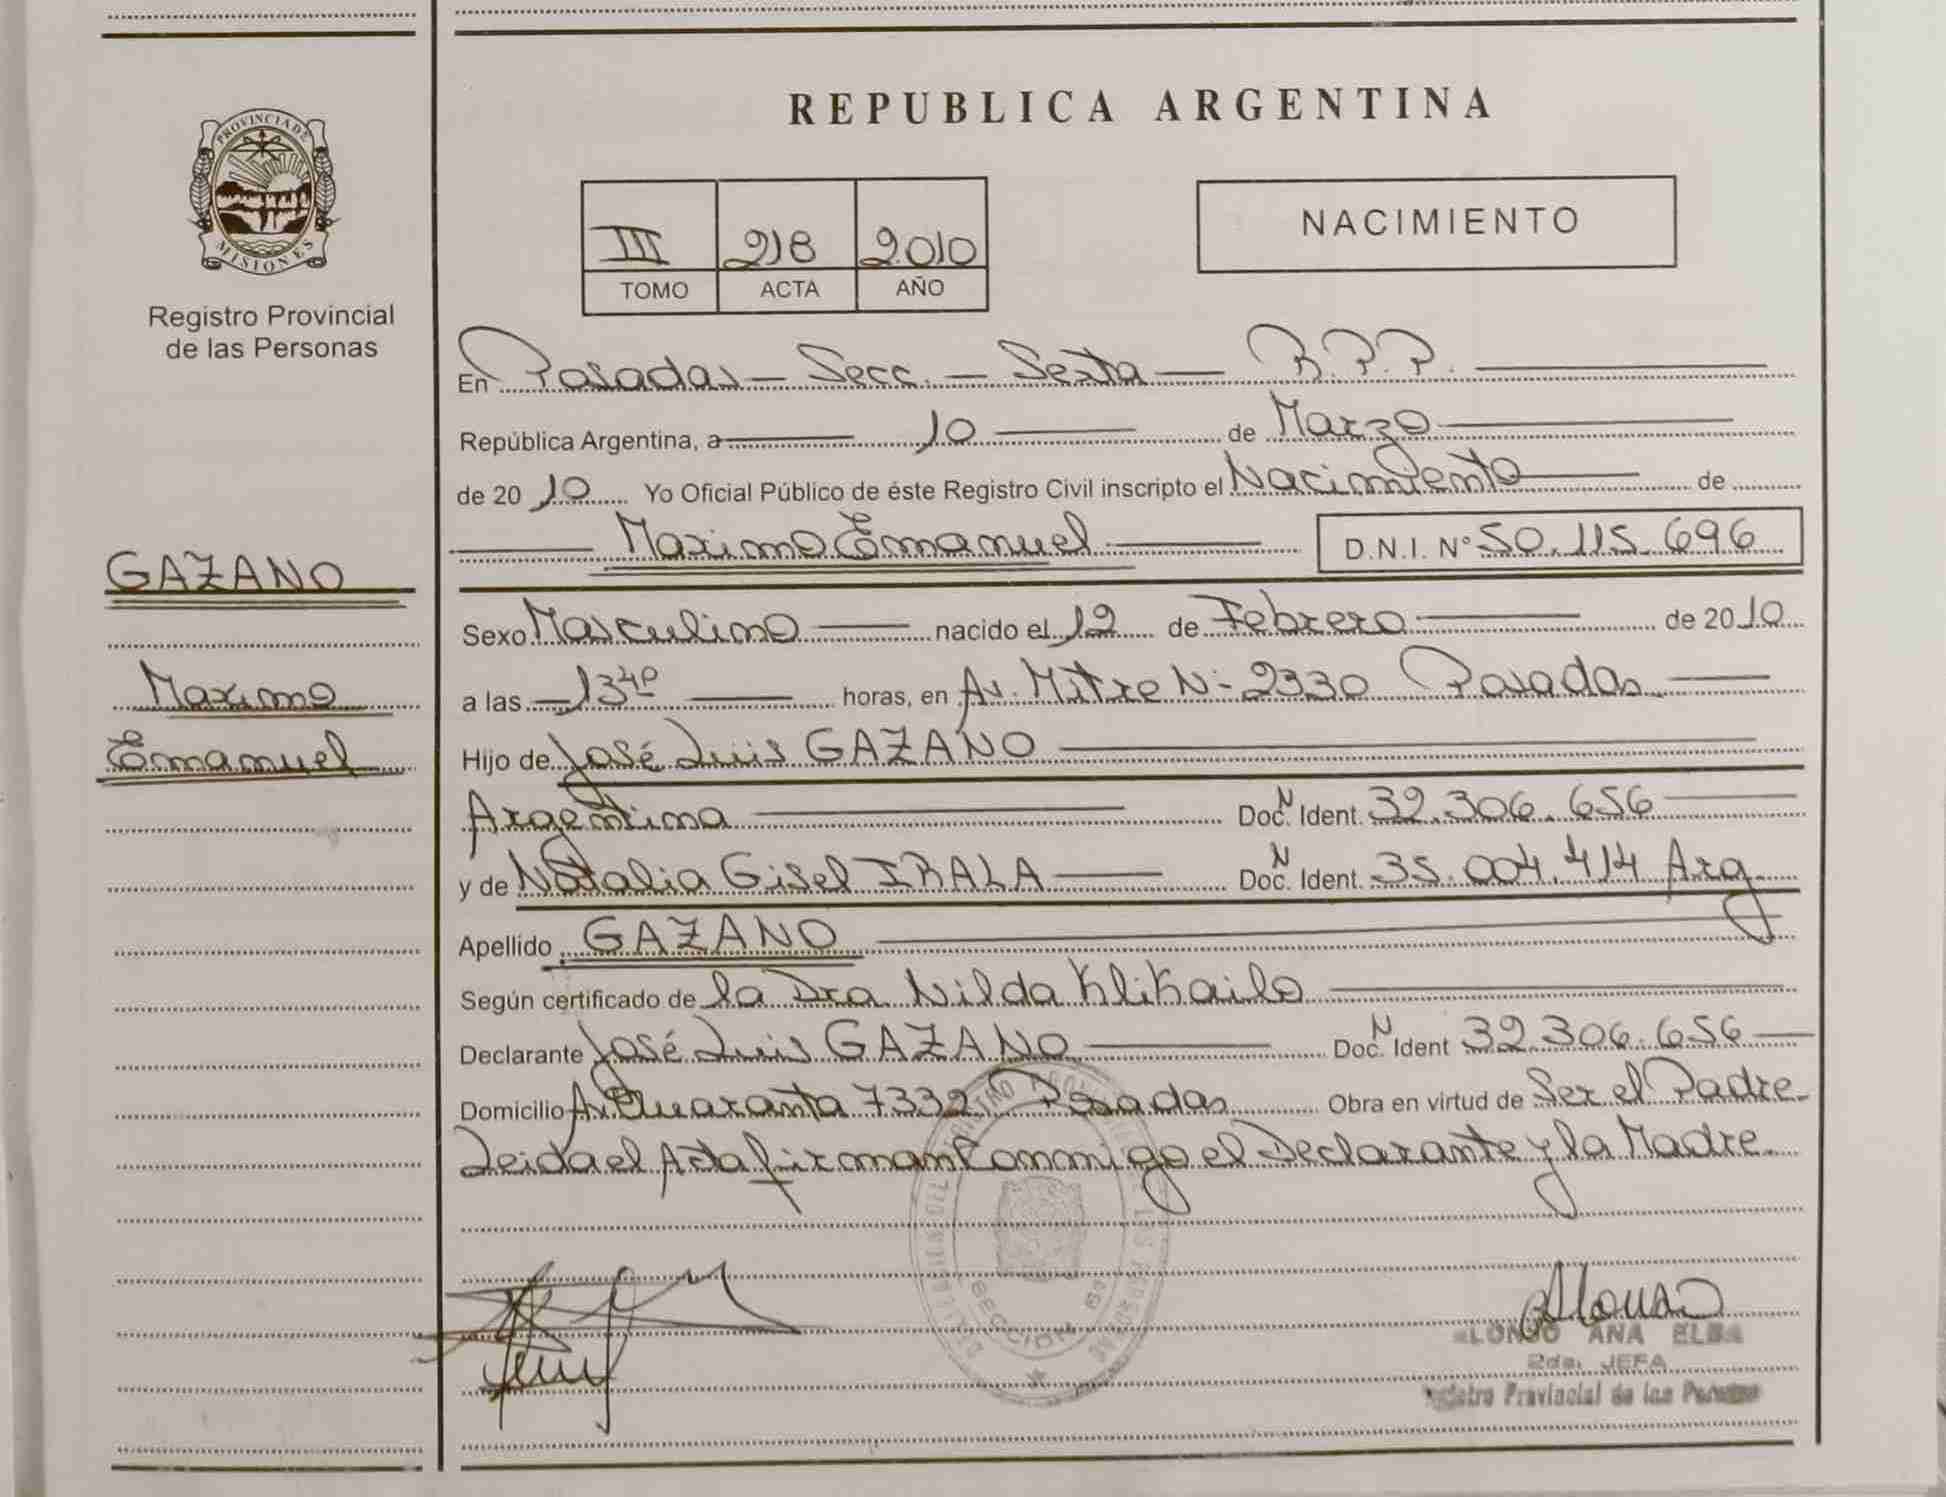 PROVINCIA DE
MISIONES
Registro Provincial
de las Personas
GAZANO
Maximo
Emanuel
REPUBLICA ARGENTINA
III 218 2010
TOMO ACTA AÑO
NACIMIENTO
En Posadas - Secc. - Sexta - R.P.P.
República Argentina, a 10 de Marzo
de 2010 Yo Oficial Público de éste Registro Civil inscripto el Nacimiento de
Maximo Emanuel D.N.I. Nº 50.115.696
Sexo Masculino nacido el 12 de Febrero de 2010
a las 13 40 horas, en Av. Mitre Nº 2330 Posadas
Hijo de José Luis GAZANO
Argentina Doc. N Ident. 32.306.656
y de Natalia Gisel IRALA Doc. N Ident. 35.004.414 Arg
Apellido GAZANO
Según certificado de la Dra Nilda Klikailo
Declarante José Luis GAZANO Doc. N Ident 32.306.656
Domicilio Av. Quaranta 7332 Posadas Obra en virtud de Ser el Padre
Leida el Acta firman Conmigo el Declarante y la Madre
SECCION 6ª
Alonso
ALONSO ANA ELBA
2da. JEFA
Registro Provincial de las Personas